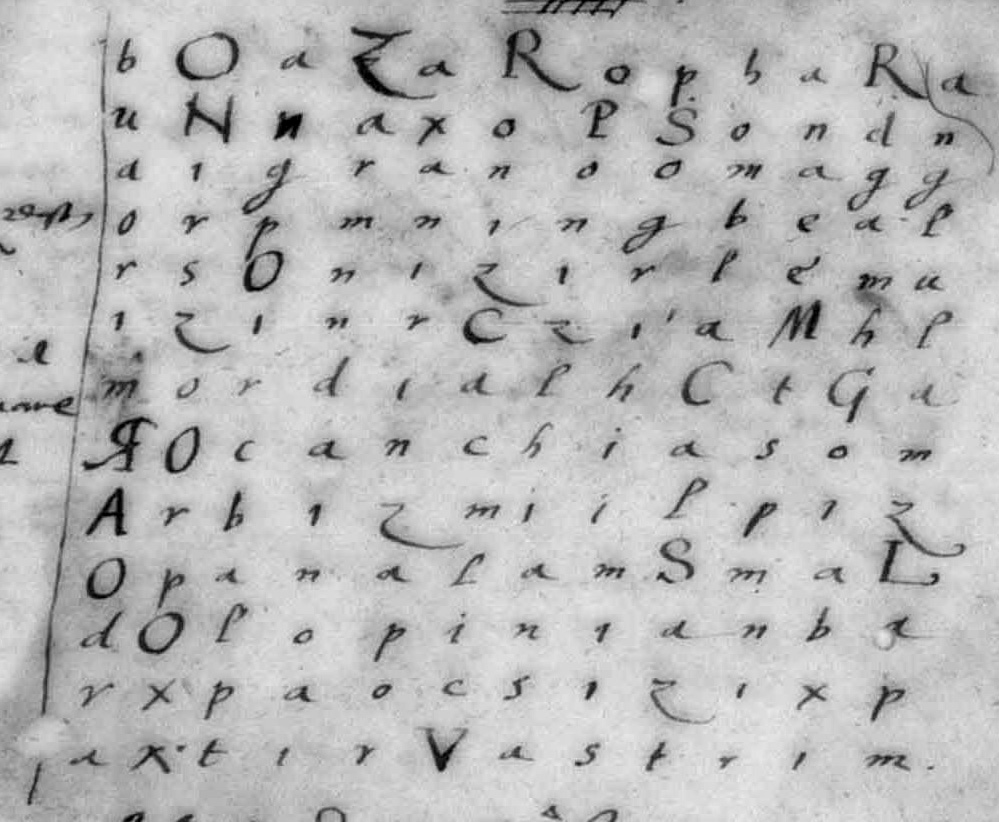 b O a Z a R o p h a R a
u N n a x o P S o n d n
a i g r a n o o m a g g
o r p m n i n g b e a l
r s O n i z i r l e m u
i z i n r C z i a M h l
m o r d i a l h C t G a
R O c a n c h i a s o m
A r b i z m i i l p i z
O p a n a l a m S m a L
d O l o p i n i a n b a
r x p a o c s i z i x p
a x t i r V a s t r i m .